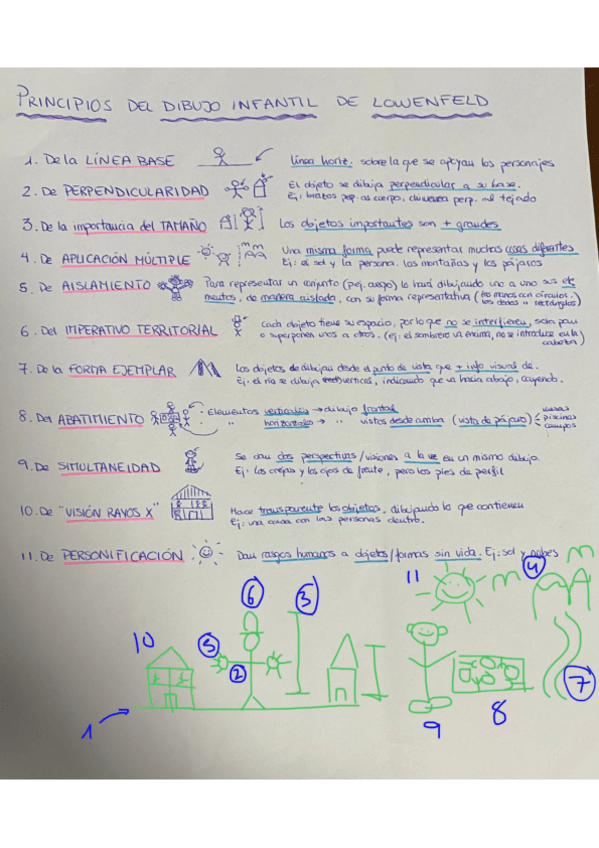 PRINCIPIOS DEL DIBUJO INFANTIL DE LOWENFELD
1. De la LÍNEA BASE línea horiz. sobre la que se apoyan los personajes
2. De PERPENDICULARIDAD El objeto se dibuja perpendicular a su base.
Ej: brazos perp. al cuerpo, chimenea perp. al tejado
3. De la importancia del TAMAÑO Los objetos importantes son + grandes
4. De APLICACIÓN MÚLTIPLE Una misma forma puede representar muchas cosas diferentes
Ej: el sol y la persona. las montañas y los pájaros
5. De AISLAMIENTO Para representar un conjunto (pej. cuerpo) lo hará dibujando uno a uno sus ele
mentos, de manera aislada, con su forma representativa (las manos con círculos,
los dedos rectángulos)
6. Del IMPERATIVO TERRITORIAL Cada objeto tiene su espacio, por lo que no se interfieren,
o superponen unos a otros. (ej: el sombrero va encima, no se introduce en la
cabeza)
7. De la FORMA EJEMPLAR Los objetos se dibujan desde el punto de vista que + info visual de.
Ej: el río se dibuja vertical, indicando que va hacia abajo, cayendo.
8. Del ABATIMIENTO Elementos verticales → dibujo frontal
" horizontales → " vistos desde arriba (vista de pájaro) mesas
piscinas
campos
9. De SIMULTANEIDAD Se dan dos perspectivas/visiones a la vez en un mismo dibujo.
Ej: las orejas y los ojos de frente, pero los pies de perfil
10. De "VISIÓN RAYOS X" Hace transparente los objetos, dibujando lo que contienen
Ej: una casa con las personas dentro.
11. De PERSONIFICACIÓN Dan rasgos humanos a objetos/formas sin vida. Ej: sol y nubes
6 3 11 4
10 5
2
7
1 9 8